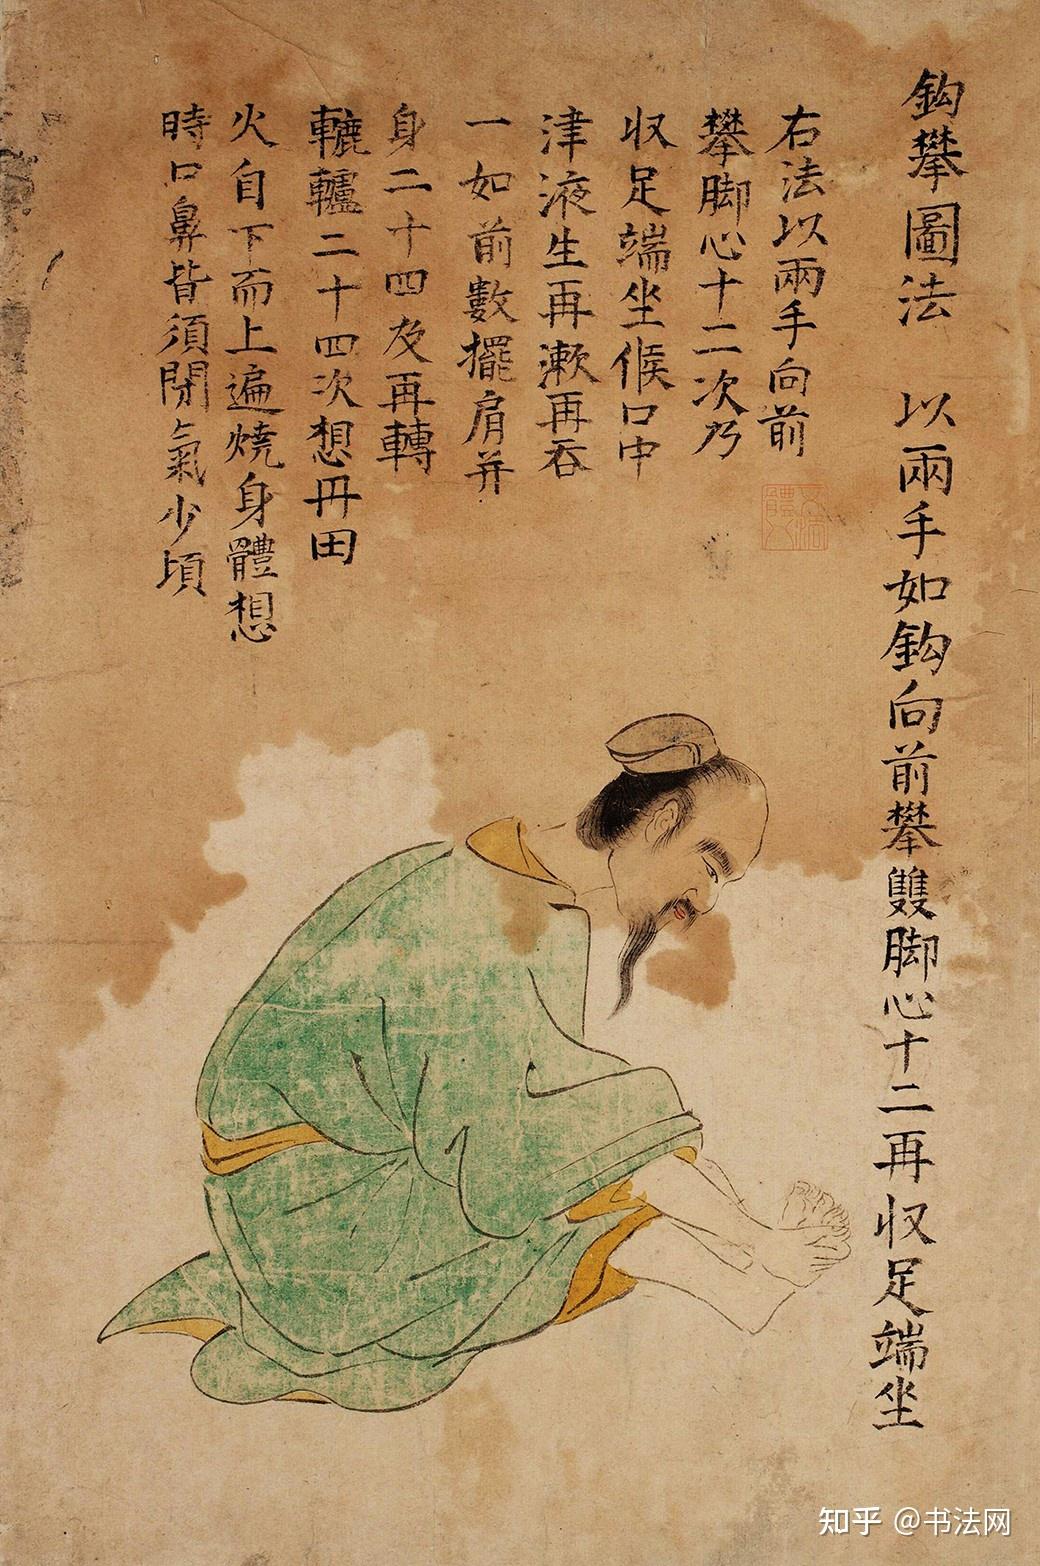 鈎攀圖法 以兩手如鈎向前攀雙脚心十二再収足端坐
右法以兩手向前
攀脚心十二次乃
収足端坐候口中
津液生再漱再吞
一如前數擺肩并
身二十四及再轉
轆轤二十四次想丹田
火自下而上遍燒身體想
時口鼻皆須閉氣少頃
知乎 @书法网